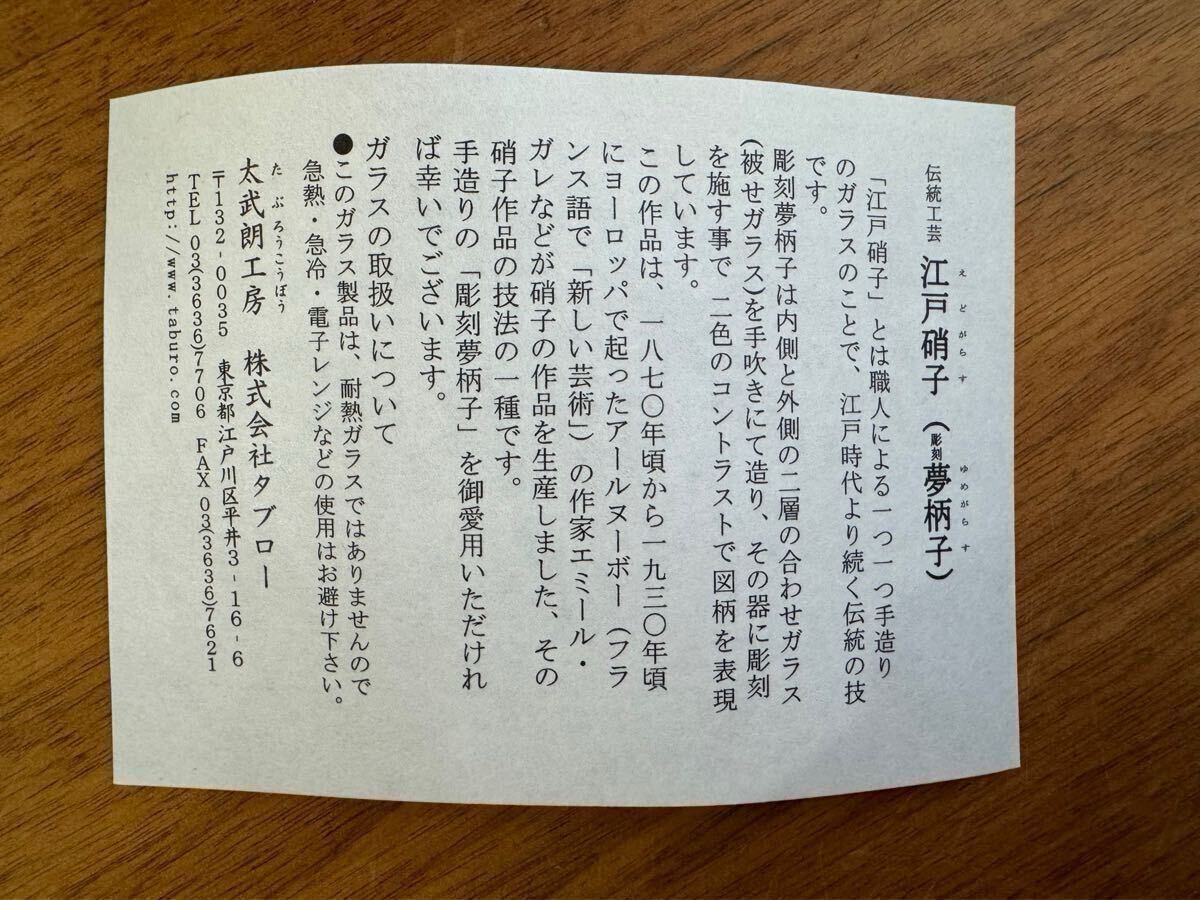 伝統工芸 江戸硝子（彫刻夢柄子）
えどがらす ゆめがらす
「江戸硝子」とは職人による一つ一つ手造り
のガラスのことで、江戸時代より続く伝統の技
です。
彫刻夢柄子は内側と外側の二層の合わせガラス
(被せガラス)を手吹きにて造り、その器に彫刻
を施す事で 二色のコントラストで図柄を表現
しています。
この作品は、一八七〇年頃から一九三〇年頃
にヨーロッパで起ったアールヌーボー（フラ
ンス語で「新しい芸術」）の作家エミール・
ガレなどが硝子の作品を生産しました、その
硝子作品の技法の一種です。
手造りの「彫刻夢柄子」を御愛用いただけれ
ば幸いでございます。
ガラスの取扱いについて
●このガラス製品は、耐熱ガラスではありませんので
急熱・急冷・電子レンジなどの使用はお避け下さい。
たぶろうこうぼう
太武朗工房 株式会社タブロー
〒132-0035 東京都江戸川区平井3-16-6
TEL 03(3636)7706 FAX 03(3636)7621
http://www.taburo.com